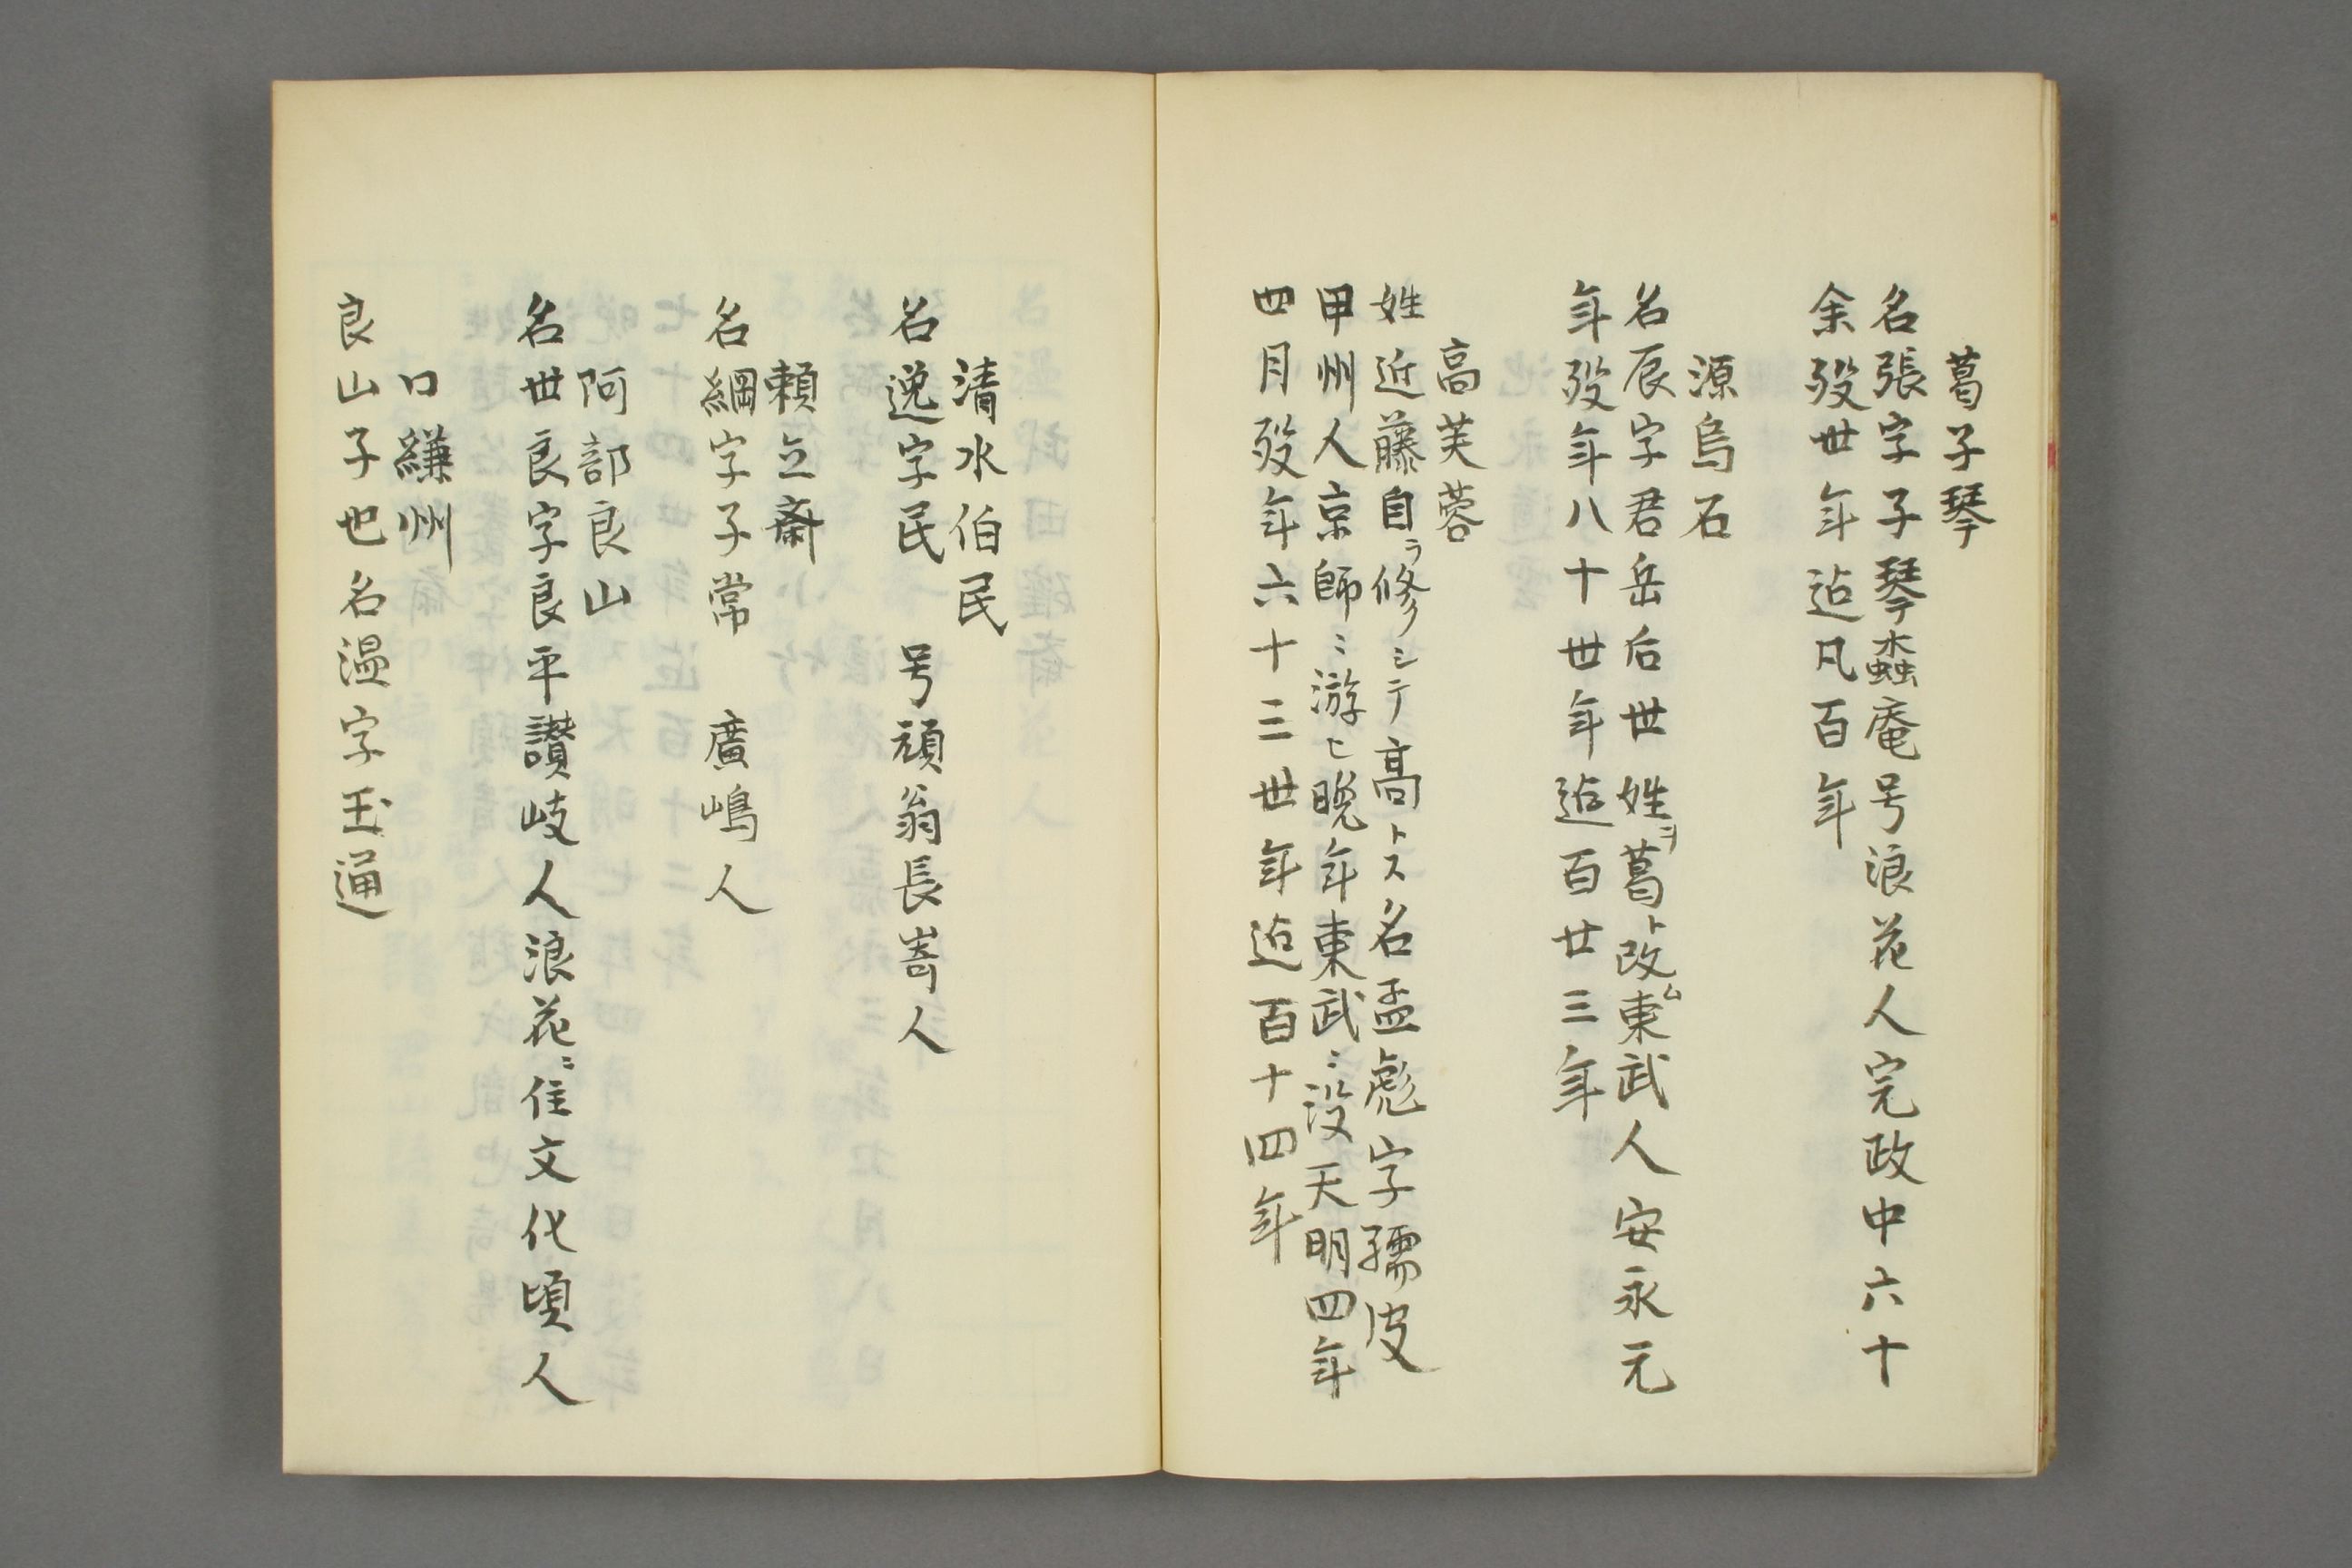 葛子琴
名張字子琴螙庵号浪花人完政中六十
余歿世年迠凡百年
源烏石
名辰字君岳后世姓ヲ葛ト改ム東武人安永元
年歿年八十世年迠百廿三年
高芙蓉
姓近藤自ラ修シテ高トス名孟彪字孺皮
甲州人京師ニ游ヒ晩年東武ニ没天明四年
四月歿年六十三世年迠百十四年
清水伯民
名逸字民　号頑翁長嵜人
頼立斎
名綱字子常　廣嶋人
阿部良山
名世良字良平讃岐人浪花ニ住文化頃人
口縑州
良山子也名温字玉通